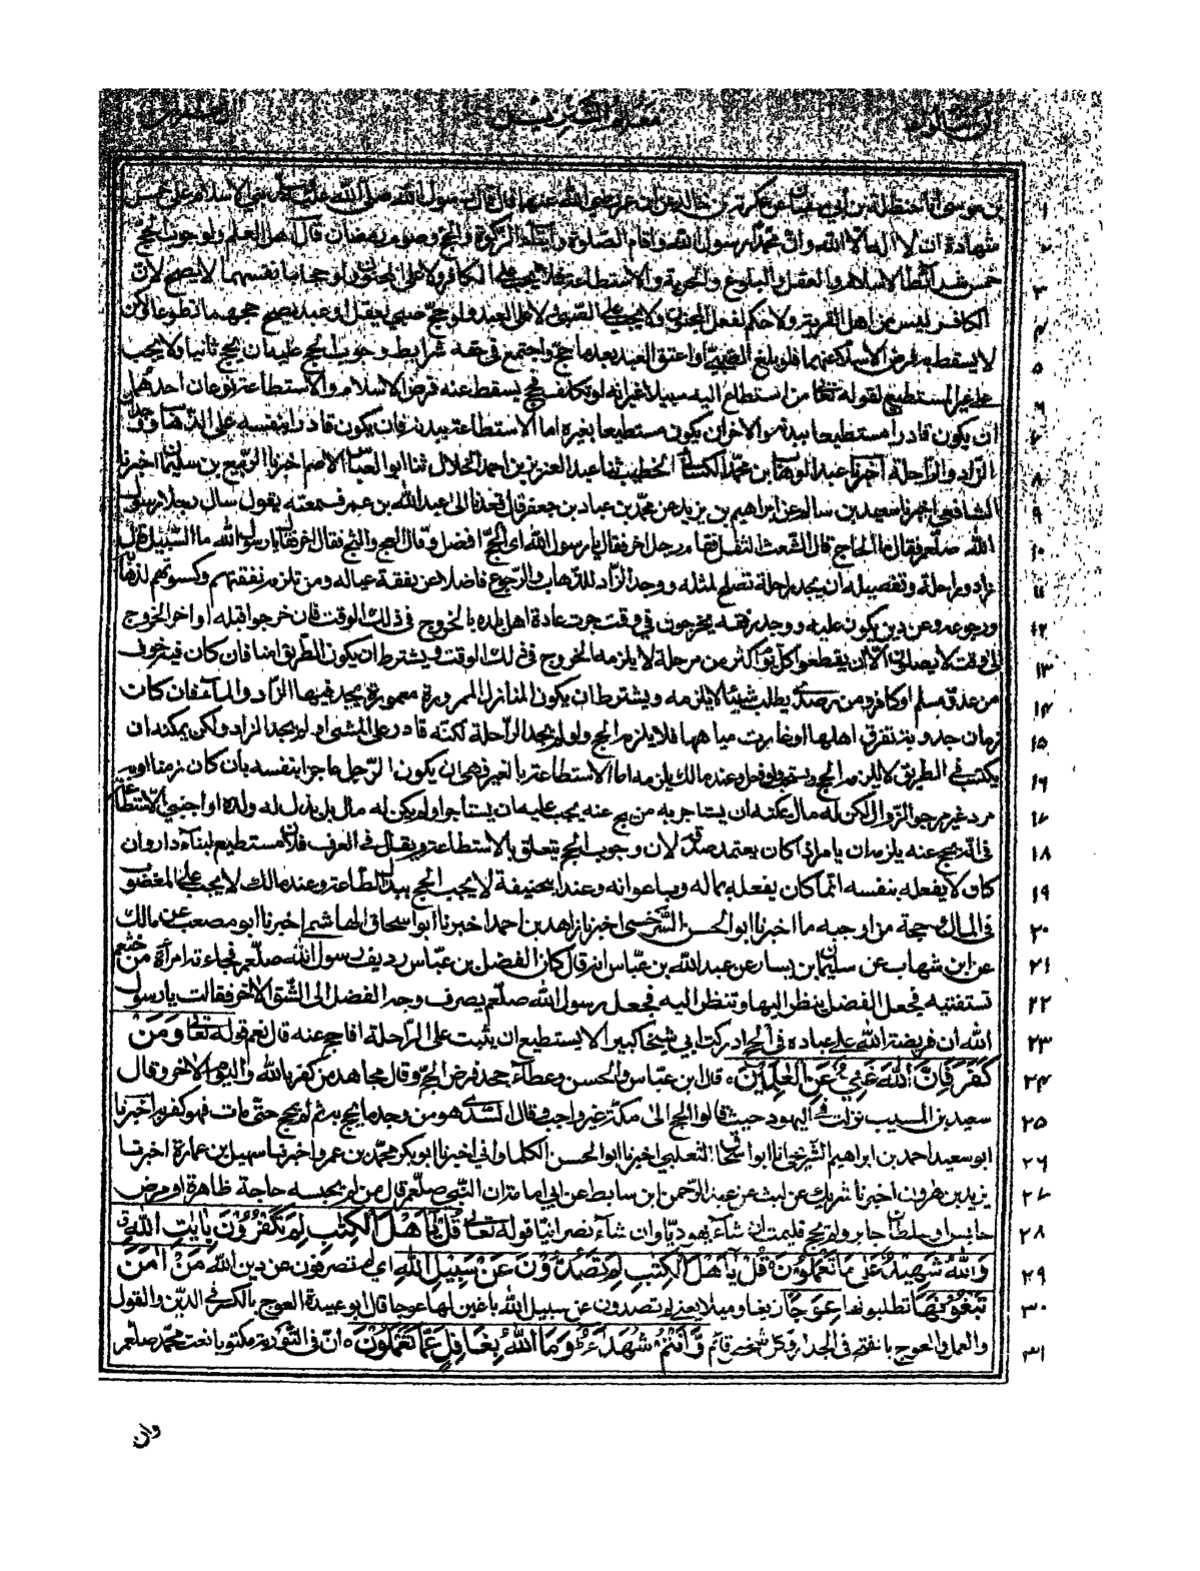 معالم التنزيل
بن موسى أنا حنظلة بن أبي سفيان عن عكرمة بن خالد عن ابن عمر رضي الله عنهما قال قال رسول الله صلى الله عليه بني الاسلام على خمس ١
شهادة ان لا اله الا الله وان محمدا رسول الله واقام الصلوة وايتاء الزكوة والحج وصوم رمضان قال اهل العلم ولوجوب الحج ٢
خمس شرائط الاسلام والعقل والبلوغ والحرية والاستطاعة فلا يجب على الكافر ولا على المجنون ولو حجا بانفسهما لا يصح لان ٣
الكافر ليس من اهل القربة ولا حكم لفعل المجنون ولا يجب على الصبي ولا على العبد ولو حج صبي يعقل او عبد يصح حجهما تطوعا لكن ٤
لا يسقط به فرض الاسلام عنهما فلو بلغ الصبي او اعتق العبد بعد ما حج واجتمع في حقه شرايط وجوب الحج عليه ان يحج ثانيا ولا يجب ٥
على غير المستطيع لقوله تعالى من استطاع اليه سبيلا غير انه لو تكلف فحج يسقط عنه فرض الاسلام والاستطاعة نوعان احدهما ٦
ان يكون قادرا مستطيعا ببدنه والاخر ان يكون مستطيعا بغيره اما الاستطاعة ببدنه فان يكون قادرا بنفسه على الذهاب ووجد ٧
الزاد والراحلة أخبرنا عبد الوهاب بن محمد الكسائي الخطيب ثنا عبد العزيز بن احمد الخلال ثنا ابو العباس الاصم اخبرنا الربيع بن سليمان اخبرنا ٨
الشافعي اخبرنا سعيد بن سالم عن ابراهيم بن يزيد عن محمد بن عباد بن جعفر قال قعدنا الى عبد الله بن عمر فسمعته يقول سال رجل رسول ٩
الله صلعم فقال ما الحاج قال الشعث التفل فقام رجل اخر فقال يا رسول الله اي الحج افضل وقال العج والثج فقال اخر فقال يا رسول الله ما السبيل قال ١٠
زاد وراحلة وتفصيله ان يجد راحلة تصلح لمثله ووجد الزاد للذهاب والرجوع فاضلا عن نفقة عياله ومن تلزمه نفقتهم وكسوتهم لذهابه ١١
ورجوعه وعن دين يكون عليه ووجد رفقة يخرجون في وقت جرت عادة اهل بلده بالخروج في ذلك الوقت فان خرجوا قبله او اخر الخروج ١٢
الى وقت لا يصلون الا ان يقطعوا كل يوم اكثر من مرحلة لا يلزمه الخروج في ذلك الوقت ويشترط ان يكون الطريق امنا فان كان فيه خوف ١٣
من عدو مسلم او كافر ومن رصدي يطلب شيئا لا يلزمه ويشترط ان يكون المنازل المرورة معمورة يجد فيها الزاد والماء فان كان ١٤
زمان جدوبة تفرق اهلها او غارت مياهها فلا يلزم الحج ولو لم يجد الراحلة لكنه قادر على المشي او لم يجد الزاد ولكن يمكنه ان ١٥
يكتسب في الطريق لا يلزمه الحج ويستحب لو فعل وعند مالك يلزمه اما الاستطاعة بالغير فهي ان يكون الرجل عاجزا بنفسه بان كان زمنا او به ١٦
مرض غير مرجو الزوال لكن له مال يمكنه ان يستاجر به من يحج عنه يجب عليه ان يستاجر او لم يكن له مال بل بذل له ولده او اجنبي الاستطاعة ١٧
في ان يحج عنه يلزمه ان يامره اذا كان يعتمد صدقه لان وجوب الحج يتعلق بالاستطاعة ويقال في العرف فلان مستطيع لبناء دار وان ١٨
كان لا يفعله بنفسه انما كان يفعله بماله وباعوانه وعند ابي حنيفة لا يجب الحج ببذل الطاعة وعند مالك لا يجب على المغضوب ١٩
في المال حجة من اوجبه ما اخبرنا ابو الحسن السرخسي اخبرنا زاهد بن احمد اخبرنا ابو اسحاق الهاشمي اخبرنا ابو مصعب عن مالك ٢٠
عن ابن شهاب عن سليمان بن يسار عن عبد الله بن عباس انه قال كان الفضل بن عباس رديف رسول الله صلعم فجاءته امرأة من خثعم ٢١
تستفتيه فجعل الفضل ينظر اليها وتنظر اليه فجعل رسول الله صلعم يصرف وجه الفضل الى الشق الاخر فقالت يا رسول ٢٢
الله ان فريضة الله على عباده في الحج ادركت ابي شيخا كبيرا لا يستطيع ان يثبت على الراحلة افاحج عنه قال نعم قوله تعالى وَمَنْ ٢٣
كَفَرَ فَإِنَّ اللّٰهَ غَنِيٌّ عَنِ الْعٰلَمِيْنَ ٥ قال ابن عباس والحسن وعطاء جحد فرض الحج وقال مجاهد من كفر بالله واليوم الاخر وقال ٢٤
سعيد بن المسيب نزلت في اليهود حيث قالوا الحج الى مكة غير واجب وقال السدي هو من وجد ما يحج به ثم لم يحج حتى مات فهو كفر به اخبرنا ٢٥
ابو سعيد احمد بن ابراهيم الشريحي انا ابو اسحاق الثعلبي اخبرنا ابو الحسن الكلماواني اخبرنا ابو بكر محمد بن عمرو اخبرنا سهيل بن عمارة اخبرنا ٢٦
يزيد بن هارون اخبرنا شريك عن ليث عن عبد الرحمن ابن سابط عن ابي امامة ان النبي صلعم قال من لم يحبسه حاجة ظاهرة او مرض ٢٧
حابس او سلطان جابر ولم يحج فليمت ان شاء يهوديا وان شاء نصرانيا قوله تعالى قُلْ يٰأَهْلَ الْكِتٰبِ لِمَ تَكْفُرُوْنَ بِاٰيٰتِ اللّٰهِ ٢٨
وَاللّٰهُ شَهِيْدٌ عَلٰى مَا تَعْمَلُوْنَ ٥ قُلْ يٰأَهْلَ الْكِتٰبِ لِمَ تَصُدُّوْنَ عَنْ سَبِيْلِ اللّٰهِ اي لم تصرفون عن دين الله مَنْ اٰمَنَ ٢٩
تَبْغُوْنَهَا تطلبونها عِوَجًا زيغا وميلا يعني لم تصدون عن سبيل الله باغين لها عوجا قال ابو عبيدة العوج بالكسر في الدين والقول ٣٠
والعمل والعوج بالفتح في الجدار وكل شخص قائم وَّأَنْتُمْ شُهَدَاءُ وَمَا اللّٰهُ بِغَافِلٍ عَمَّا تَعْمَلُوْنَ ٥ ان في التورية مكتوبا نعت محمد صلعم ٣١
وان